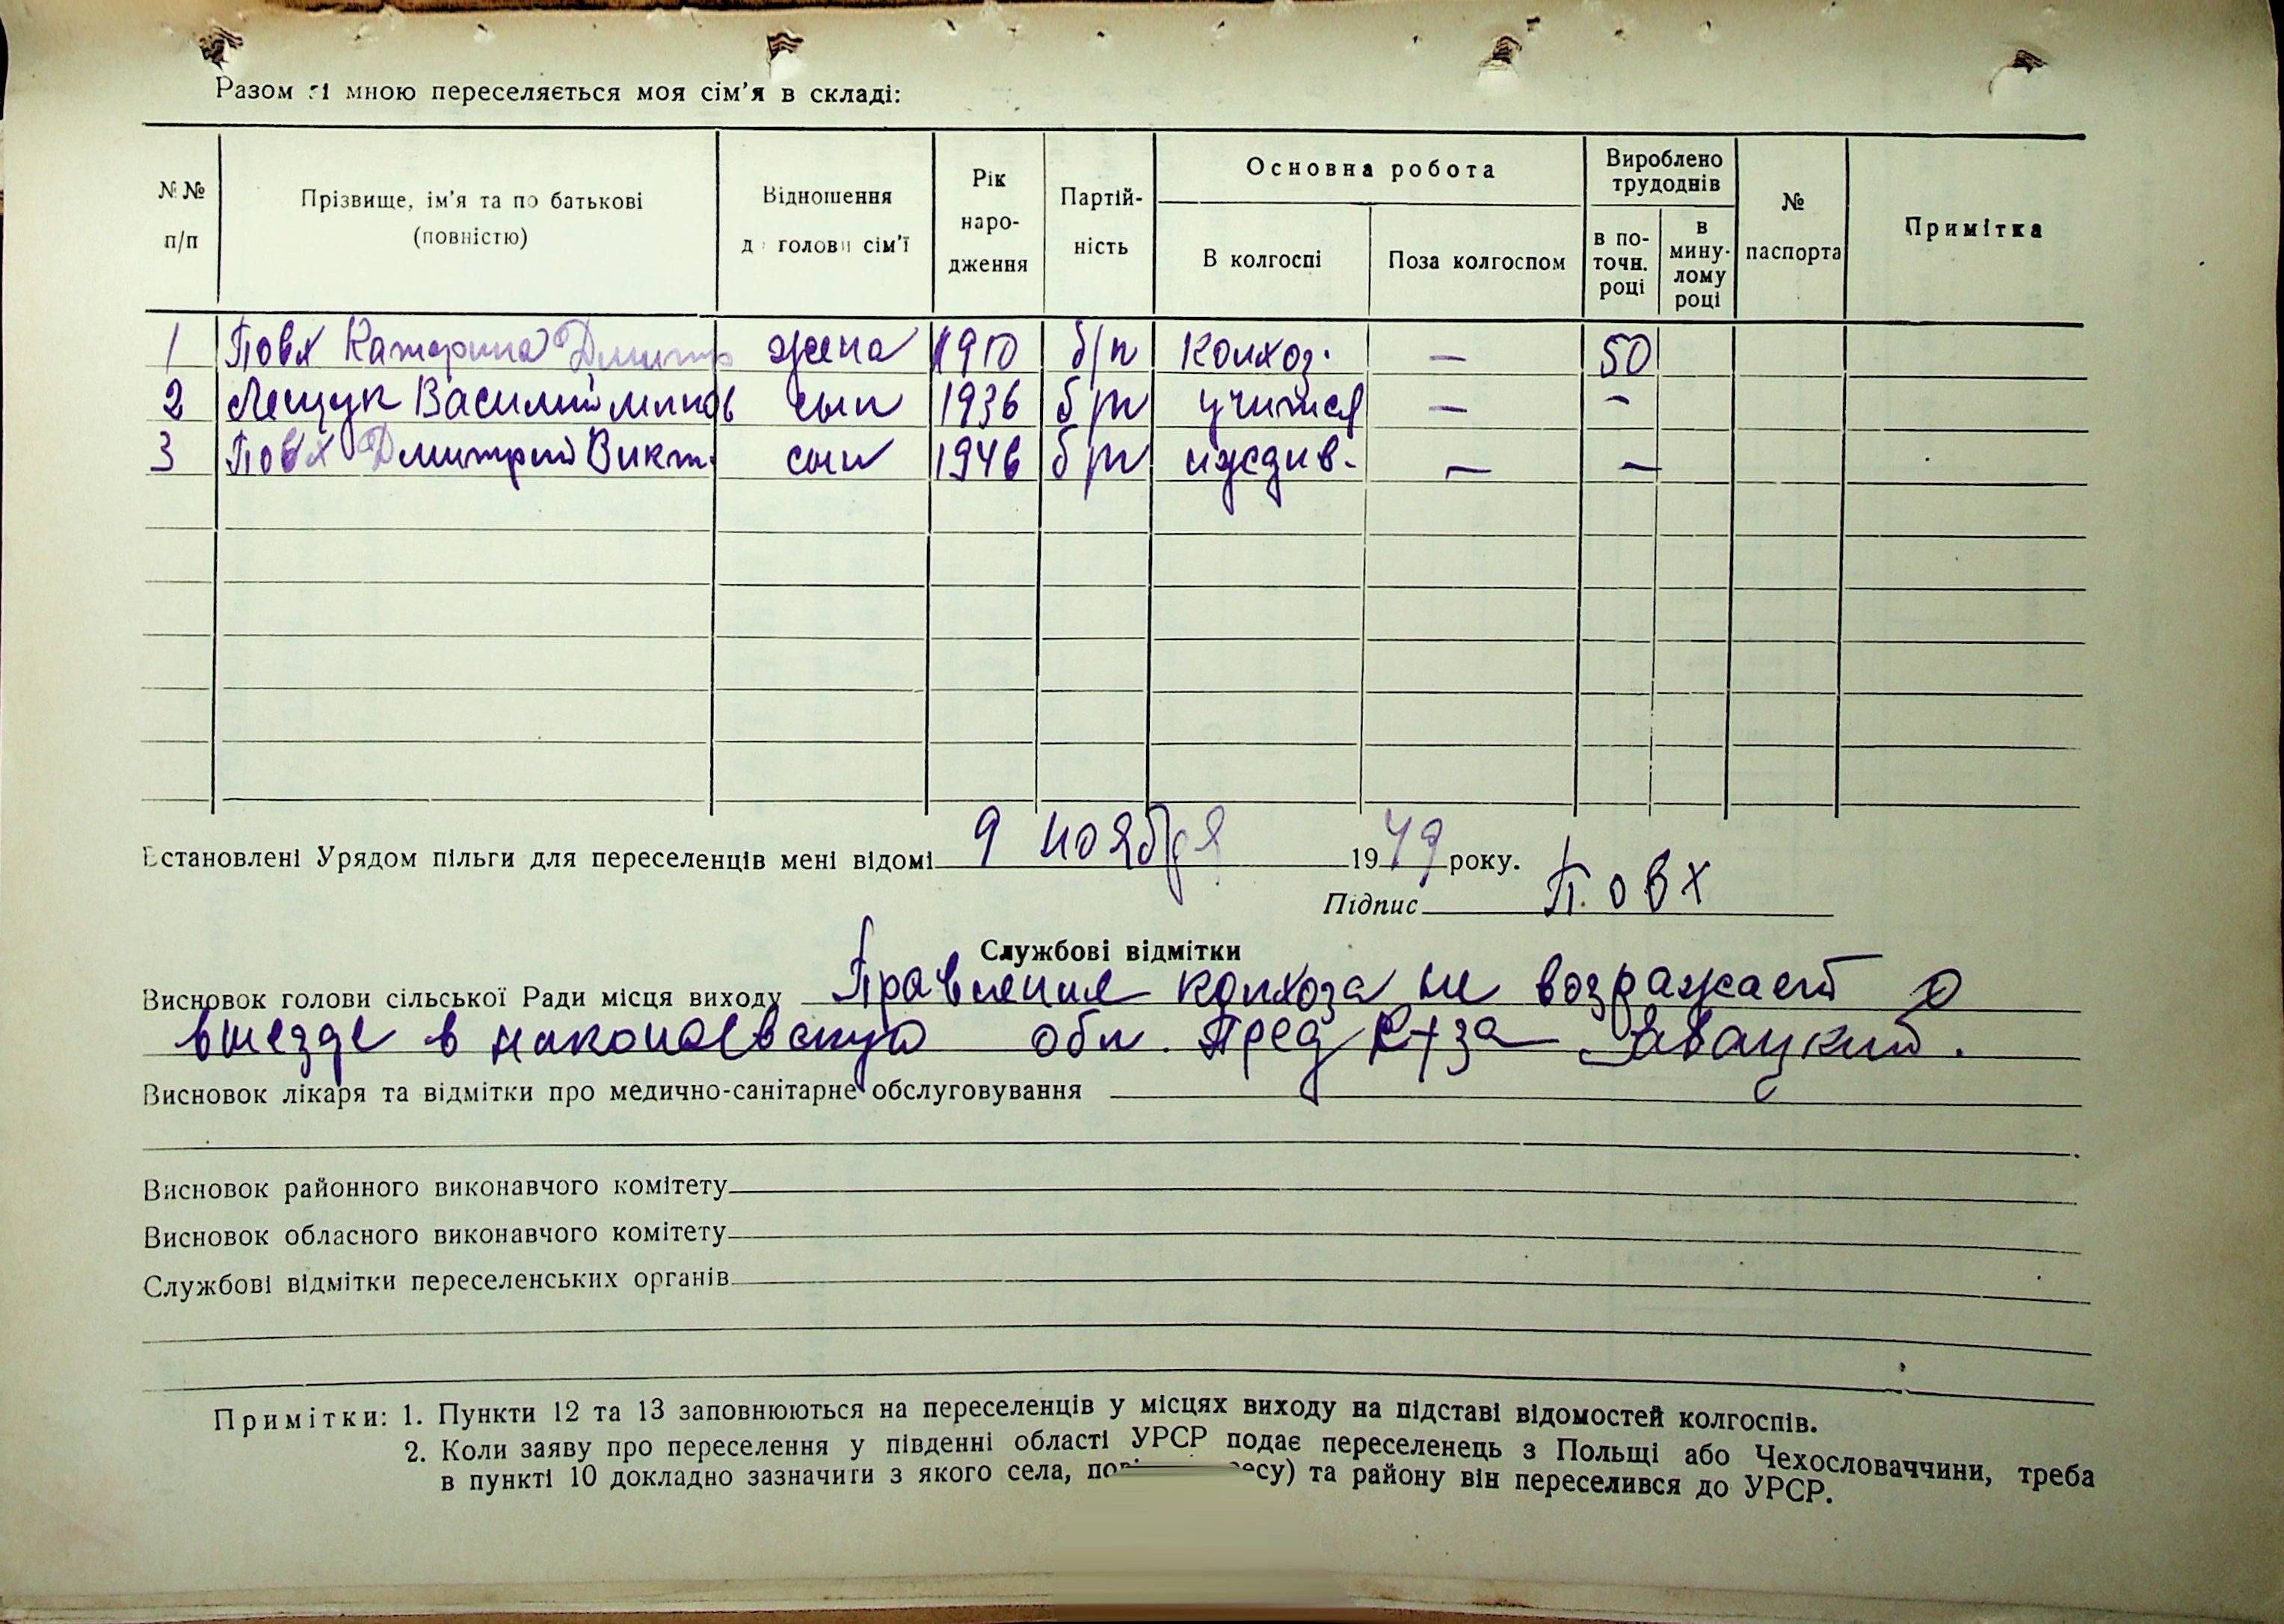 Разом зі мною переселяється моя сім'я в складі:
№№ п/п | Прізвище, ім'я та по батькові (повністю) | Відношення до голови сім'ї | Рік народження | Партійність | Основна робота | Вироблено трудоднів | № паспорта | Примітка
В колгоспі | Поза колгоспом | в поточн. році | в минулому році
1 | Повх Катерина Дмитр | жена | 1910 | б/п | колхоз. | — | 50
2 | Лещук Василий | сын | 1936 | б/п | учится | — | —
3 | Повх Дмитрий Викт. | сын | 1946 | б/п | иждив. | — | —
Встановлені Урядом пільги для переселенців мені відомі 9 ноября 1949 року.
Підпис Повх
Службові відмітки
Висновок голови сільської Ради місця виходу Правление колхоза не возражает о
выезде в николаевскую обл. Пред к-за Завацкий.
Висновок лікаря та відмітки про медично-санітарне обслуговування
Висновок районного виконавчого комітету
Висновок обласного виконавчого комітету
Службові відмітки переселенських органів
Примітки: 1. Пункти 12 та 13 заповнюються на переселенців у місцях виходу на підставі відомостей колгоспів.
2. Коли заяву про переселення у південні області УРСР подає переселенець з Польщі або Чехословаччини, треба
в пункті 10 докладно зазначити з якого села, та району він переселився до УРСР.